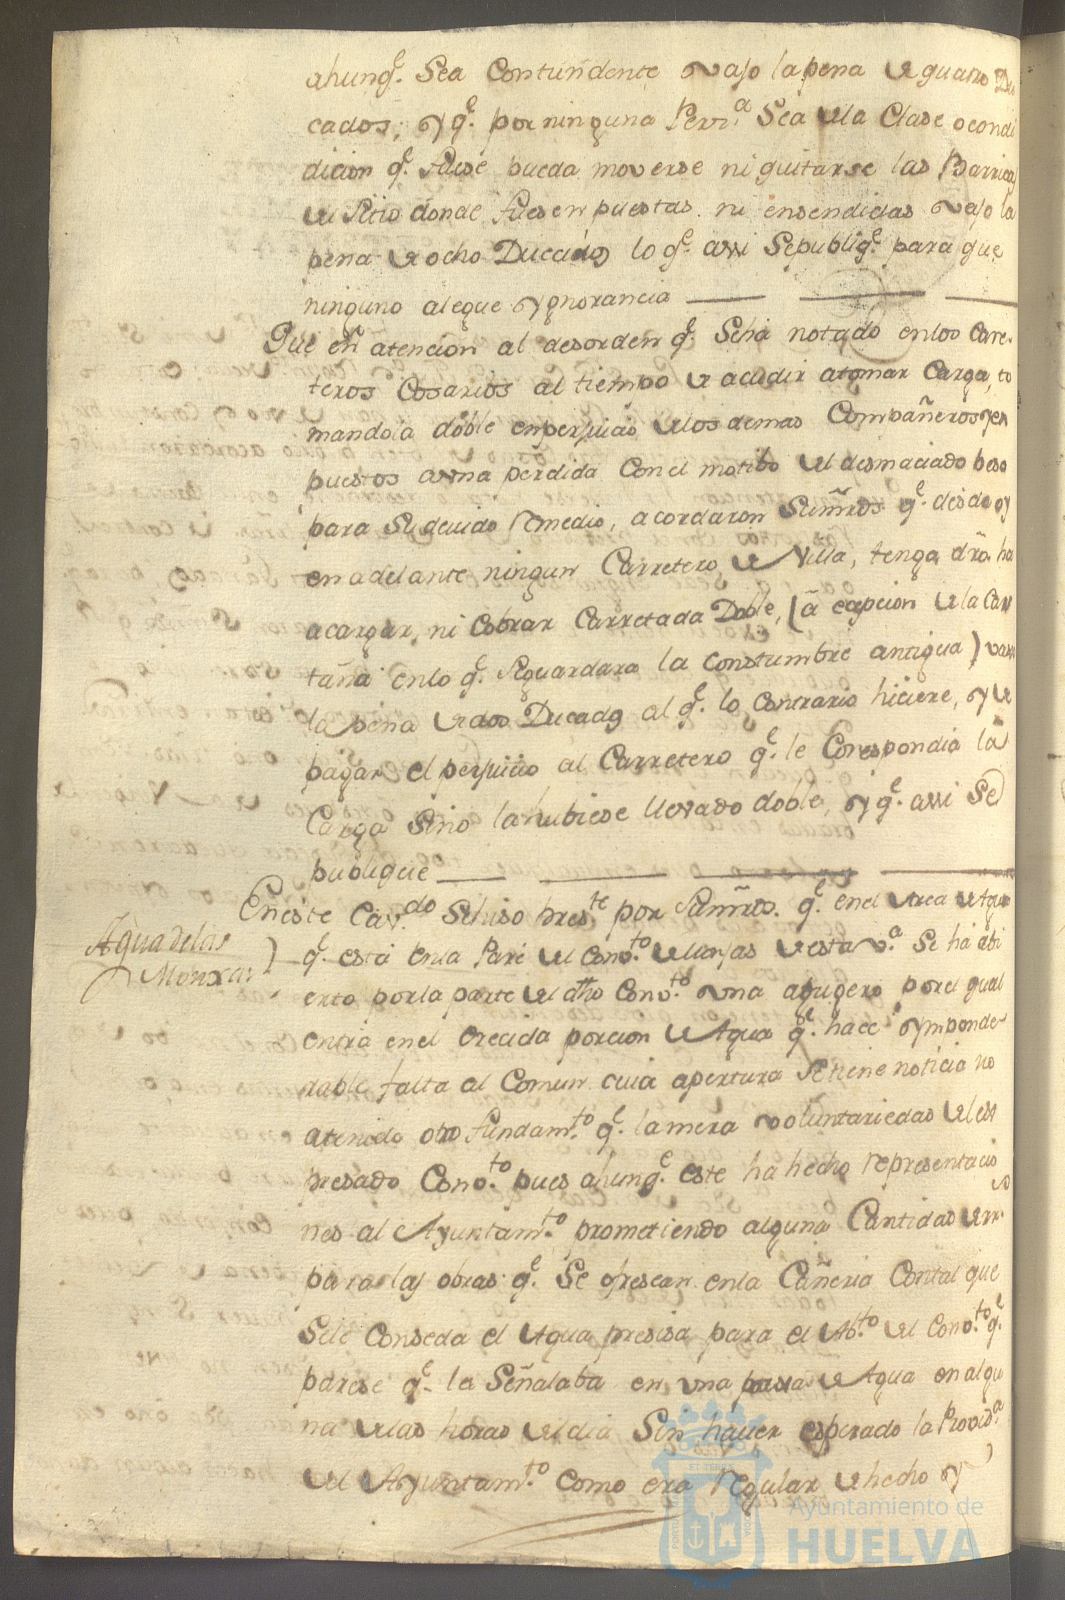 ahunq.e Sea Contundente vajo la pena de quatro Du
cados; y q.e por ninguna Perz.a Sea dela Clase o condi
dicion q.e fuese pueda moverse ni quitarse las Barricas
de Sitio donde fuesen puestas ni ensendidas vajo la
pena de ocho Ducados lo q.e assi Sepubliq.e para que
ninguno alegue ygnorancia
Que en atencion al desorden q.e Seha notado enlos Care-
teros Cosarios al tiempo de acudir atomar Carga, to
mandola doble enperjuicio delos demas Compañeros y ex
puestos auna perdida Con el motibo del desmaciado peso
para Su devido remedio, acordaron Sumrds q.e desde oy
en adelante ningun Carretero de Villa, tenga dro. ha
acargar, ni Cobrar Carretada Doble, (a ecepcion dela Cas
taña enlo q.e Seguardara la constumbre antigua) vaxo
la pena de dos Ducados al q.e lo Contrario hiciere, y de
pagar el perjuicio al Carretero q.e le Corespondia la
Carga Sino la hubiese llevado doble, y q.e assi Se
publique
Eneste Cav.do Sehiso pres.te por Sumrds. q.e en el Arca de Agua
Agua delas
Monxas
q.e está enla Pare del Conv.to de Monjas de esta v.a Se ha abi
erto porla parte del dho Conv.to una agugero por el qual
entra en el crecida porcion de Agua q.e hace ymponde-
rable falta al Comun cuia apertura Se tiene noticia no
atenido otro fundam.to q.e la mera voluntariedad del ex
presado Conv.to pues ahunq.e este ha hecho representacio
nes al Ayuntam.to prometiendo alguna Cantidad de mrs.
para las obras q.e Se ofrescan enla Cañeria Contal que
Sele Conseda el Agua presisa para el Ab.to del Conv.to q.e
parese q.e la Señalaba en una paxa de Agua en algu
na delas horas del dia Sin haver esperado la Provid.a
del Ayuntam.to como era regular de hecho y
Ayuntamiento de
HUELVA